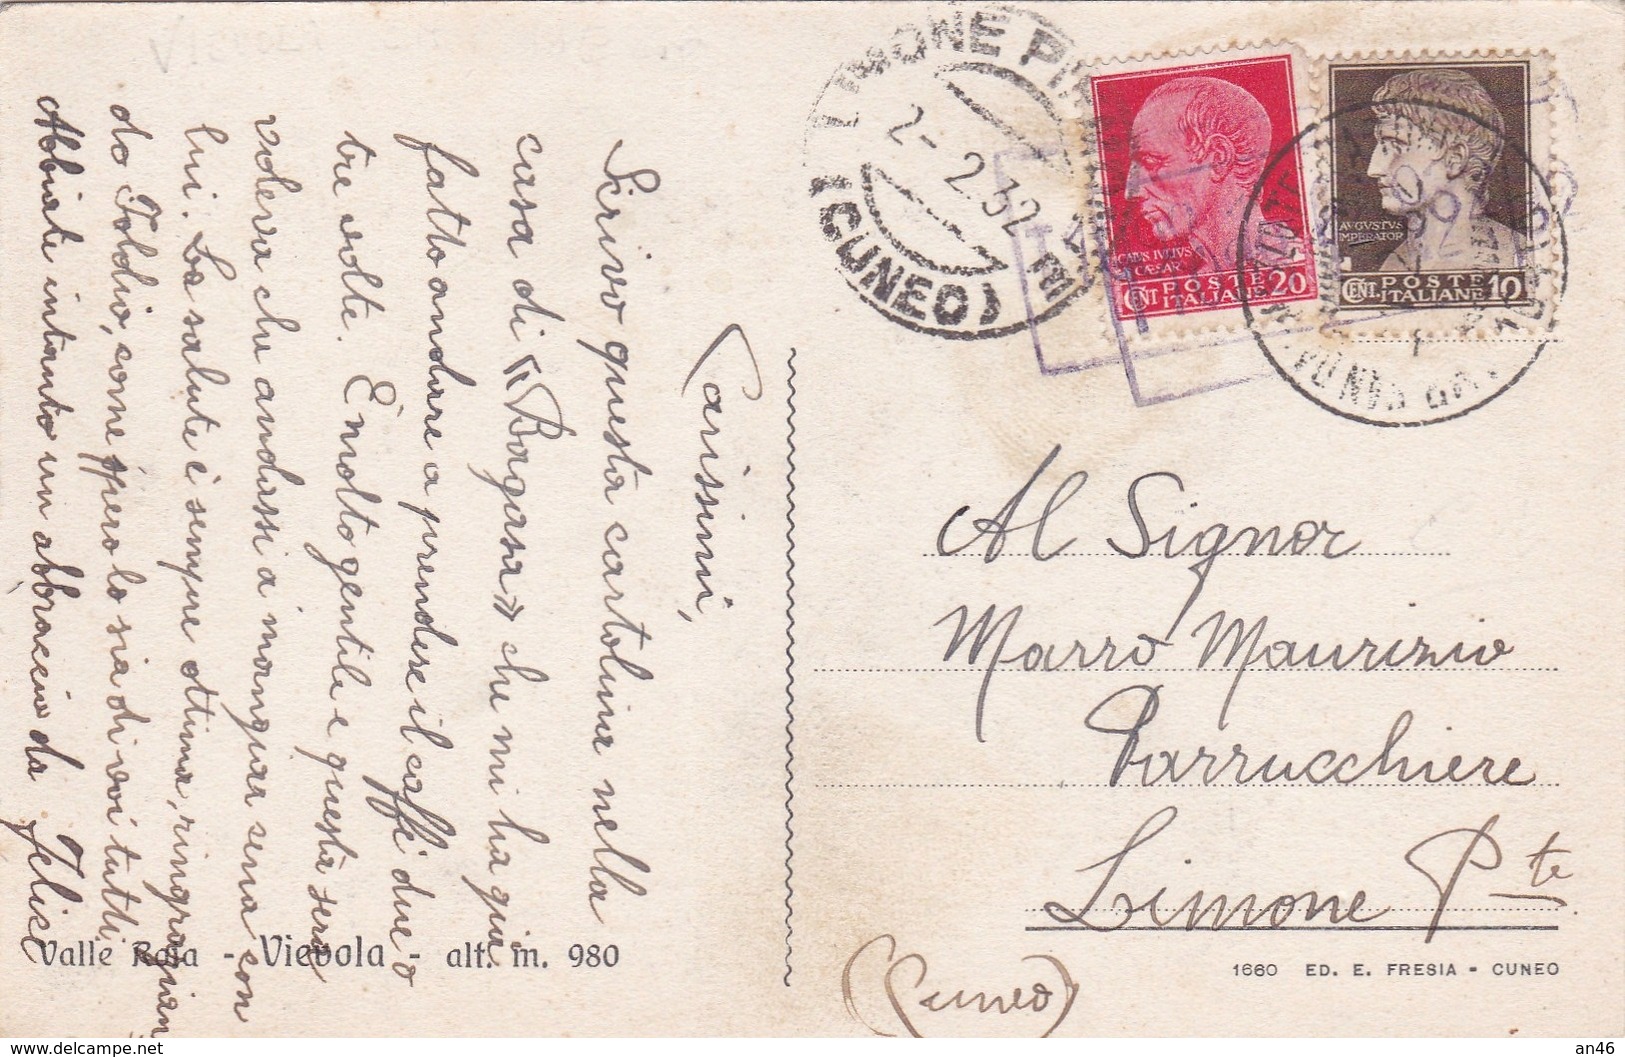 Carissimi,
Scrivo questa cartolina nella
casa di «Bogasa» che mi ha già
fatto andare a prendere il caffè due o
tre volte. È molto gentile e questa sera
voleva che andassi a mangiar sena con
lui. La salute è sempre ottima, ringrazian
do Iddio, come spero lo sia di voi tutti.
Abbiate intanto un abbraccio da Felice
Valle Roia - Vievola - alt. m. 980
LIMONE PIEMONTE
2-2.32
(CUNEO)
CAIVS IVLIVS
CAESAR
CENT. POSTE ITALIANE 20
AVGVSTVS
IMPERATOR
CENT. POSTE ITALIANE 10
Al Signor
Marro Maurizio
Parrucchiere
Limone P.te
(Cuneo)
1660 ED. E. FRESIA - CUNEO
an46